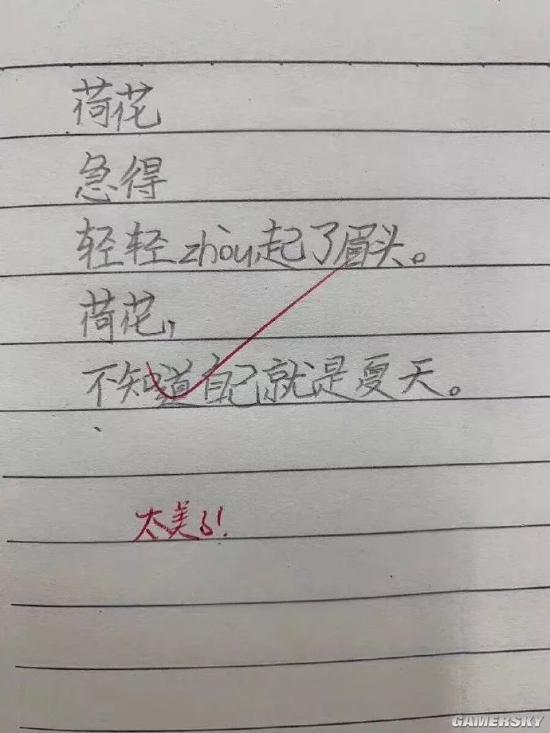 荷花
急得
轻轻zhòu起了眉头。
荷花,
不知道自己就是夏天。
太美了!
GAMERSKY